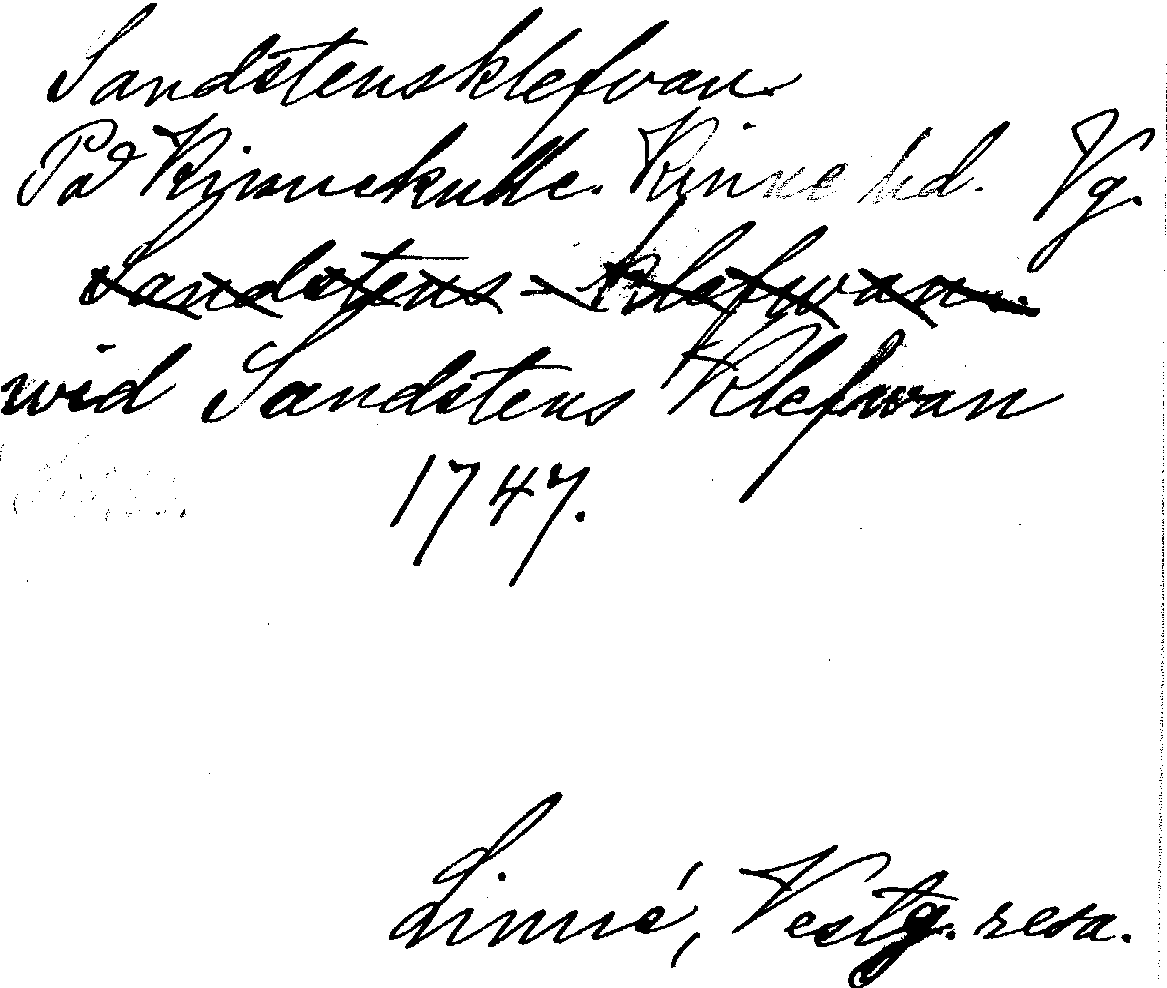 Sandstensklefvan.
På Kinnekulle. Kinne hd. Vg.
Sandstens - Klefwan.
wid Sandstens Klefwan
1747.
Linné, Vestg. resa.